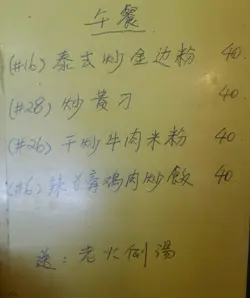 午餐
(#16) 泰式炒金边粉 40.
(#28) 炒贵刁 40.
(#26) 干炒牛肉米粉 40
(#6) 辣 鸡肉炒飯 40
送：老火例湯